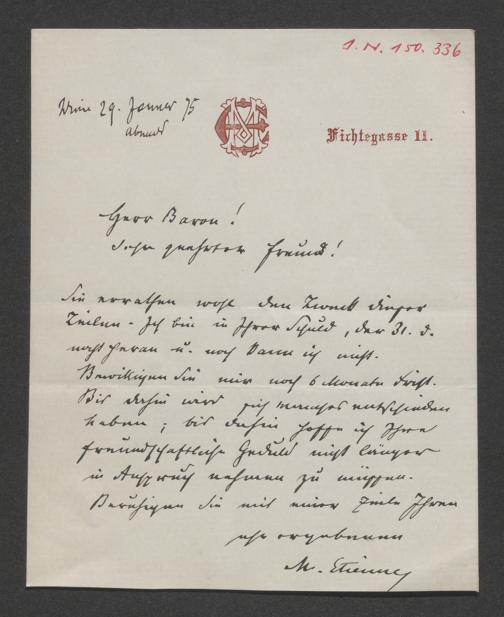 I. N. 150.336
Wien 29. Jänner 75
Abends
Fichtegasse 11.
Herr Baron!
Sehr geehrter Freund!
Sie errathen wohl den Zweck dieser
Zeilen - Ich bin in Ihrer Schuld, der 31. d.
naht heran u. noch kann ich nicht.
Bewilligen Sie mir noch 6 Monate Frist.
Bis dahin wird sich manches entschieden
haben; bis dahin hoffe ich Ihre
freundschaftliche Geduld nicht länger
in Anspruch nehmen zu müssen.
Beruhigen Sie mit einer Zeile Ihren
ergebenen
M. Etienne